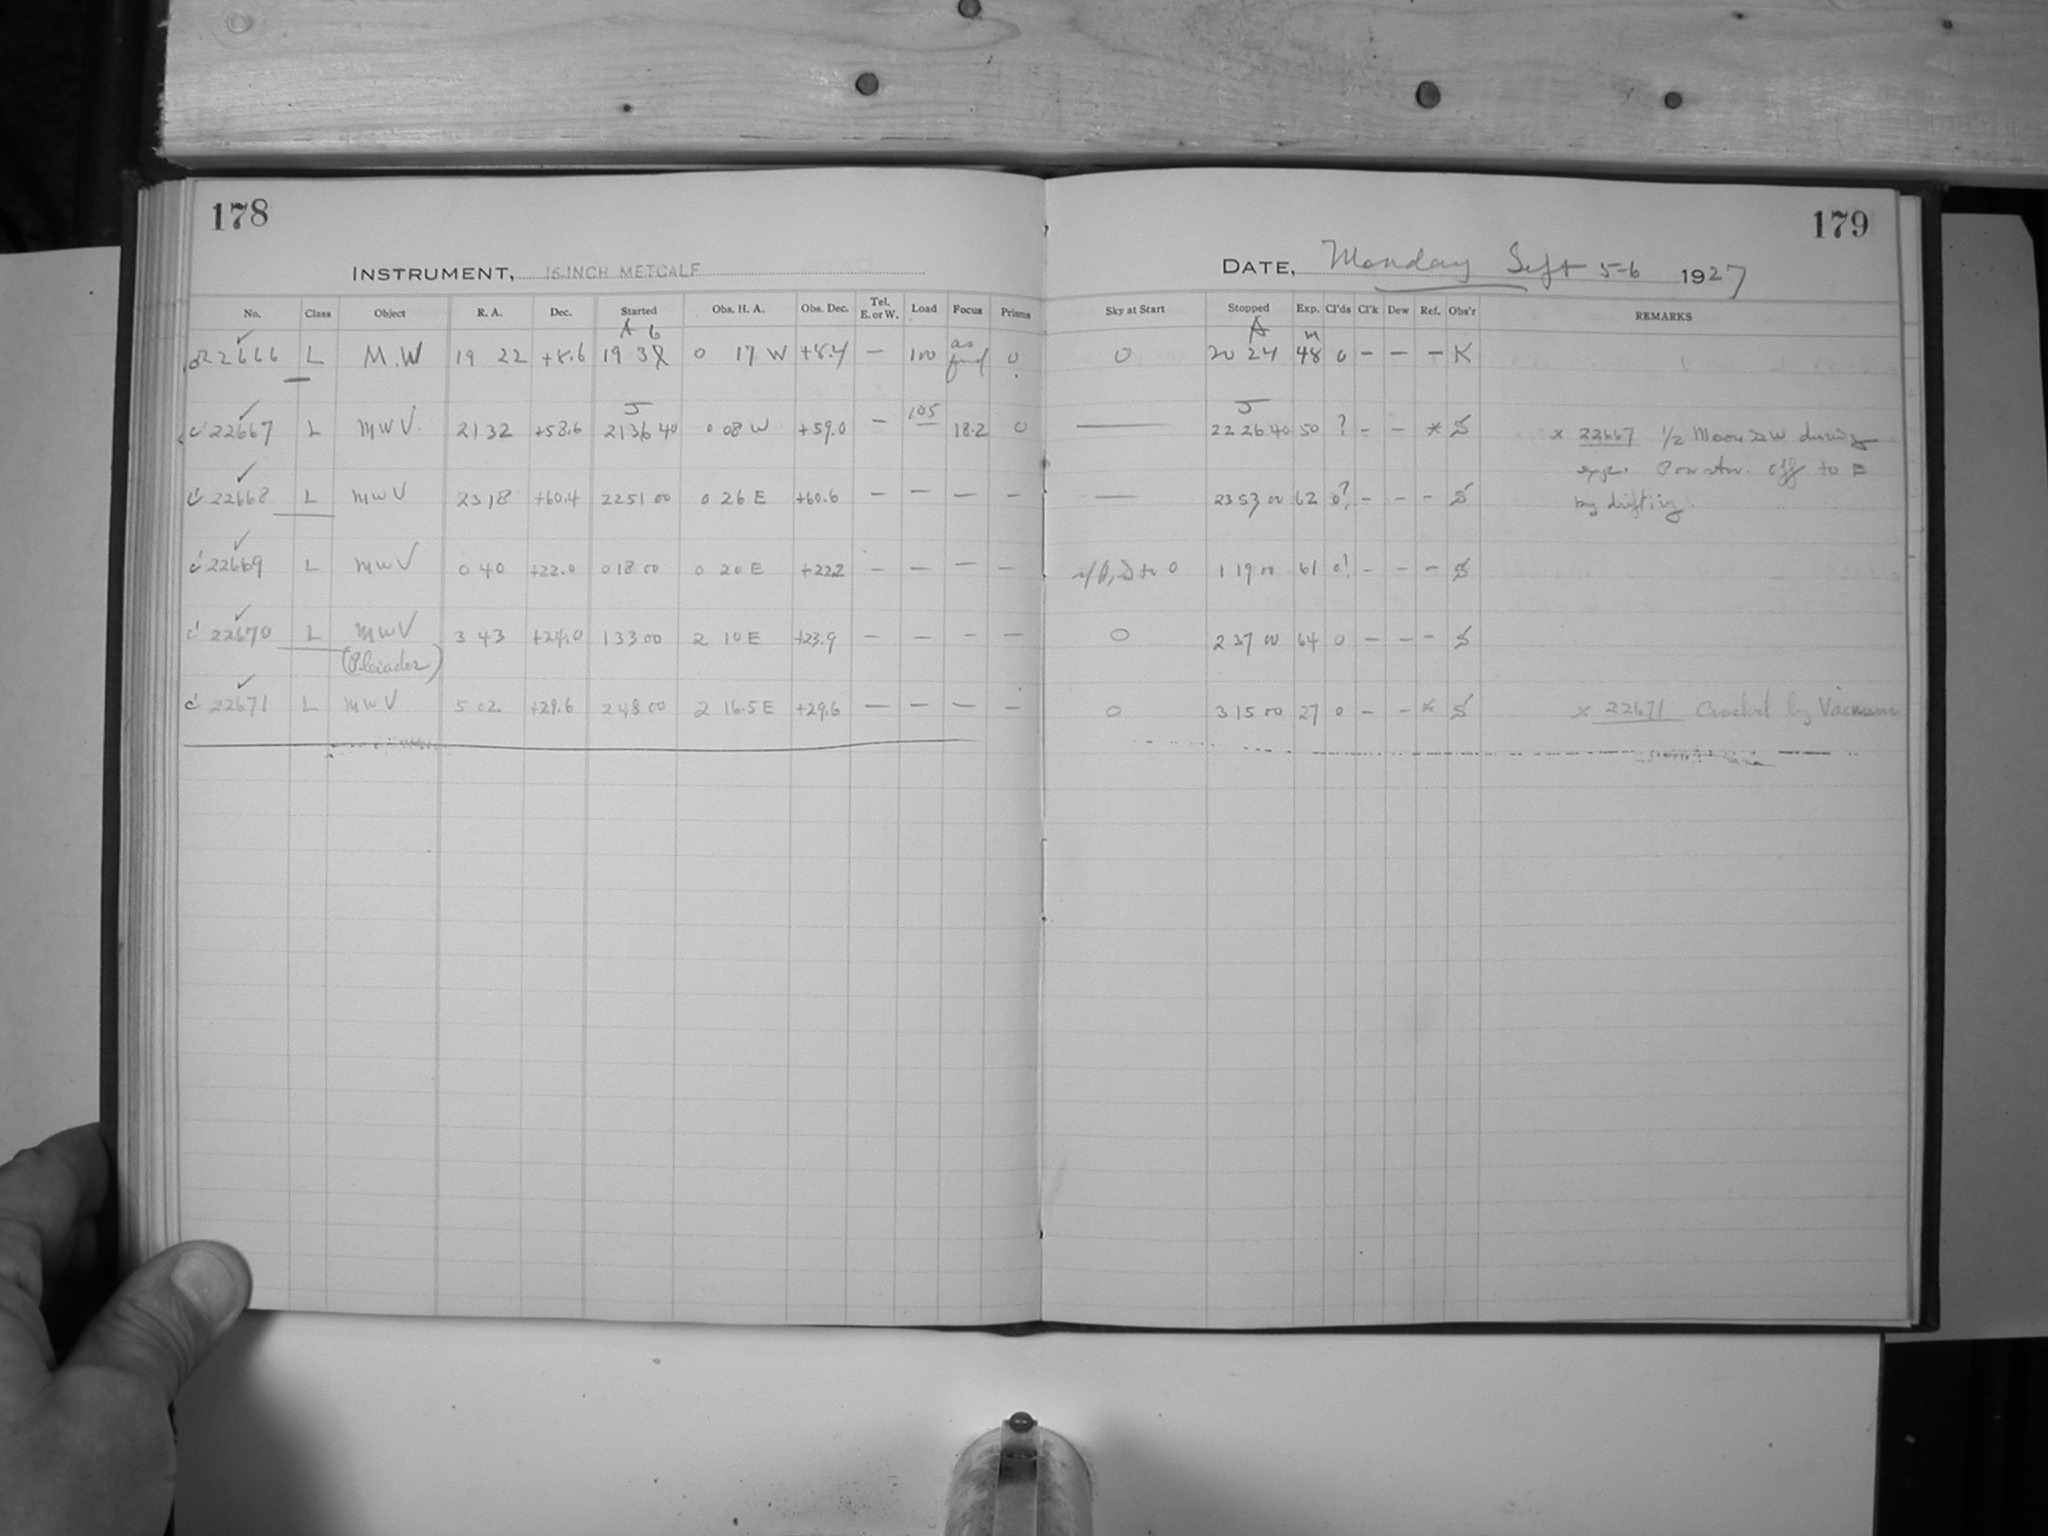 178
179
INSTRUMENT, 16 INCH METCALF
DATE, Monday Sept 5-6 1927
No. Class Object R. A. Dec. Started Obs. H. A. Obs. Dec. Tel. E. or W. Load Focus Prisms Sky at Start Stopped Exp. Cl'ds Cl'k Dew Ref. Obs'r REMARKS
A 6 A m
22666 L M.W 19 22 +8.6 19 3 0 17 W +8.4 — 100 as 0 0 20 24 48 0 – – – K
J J
c' 22667 L MWV 21 32 +58.6 21 36 40 0 08 W +59.0 — 105 18.2 0 — 22 26 40 50 ? – – * S x 22667 1/2 Moon SW during
exp. off to E
c' 22668 L MWV 23 18 +60.4 22 51 00 0 26 E +60.6 — — — — — 23 53 00 62 0? – – – S by drifting.
c' 22669 L MWV 0 40 +22.0 0 18 00 0 20 E +22.2 — — — — to 0 1 19 00 61 0? – – – S
c' 22670 L MWV 3 43 +24.0 1 33 00 2 10 E +23.9 — — — — 0 2 37 00 64 0 – – – S
(Pleiades)
c' 22671 L MWV 5 02 +29.6 2 48 00 2 16.5 E +29.6 — — — — 0 3 15 00 27 0 – – * S x 22671 Cracked by Vacuum